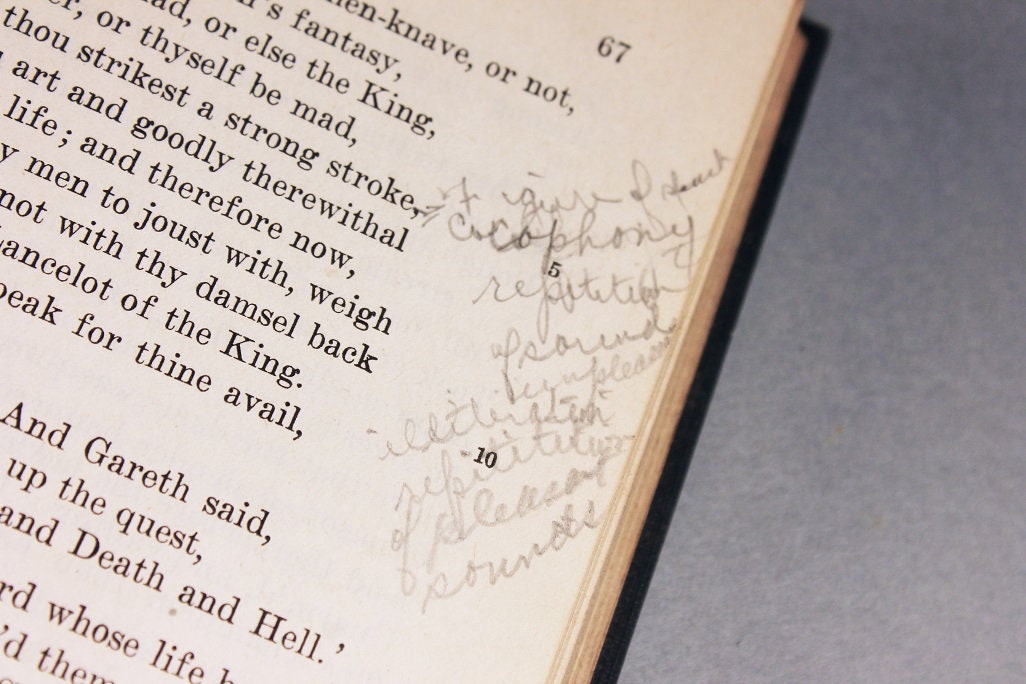 67
hen-knave, or not,
's fantasy,
ad, or else the King,
er, or thyself be mad,
thou strikest a strong stroke,
art and goodly therewithal
life; and therefore now,
y men to joust with, weigh
not with thy damsel back
ancelot of the King.
peak for thine avail,
And Gareth said,
up the quest,
and Death and Hell.'
rd whose life h
'd them
5
10
Figure of
Cacophony
repitition
of sound
unpleasant
illiteration
repitition
of pleasant
sounds